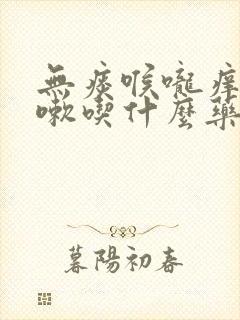 無痰喉嚨痒
嗽喫什麼藥
暮陽初春